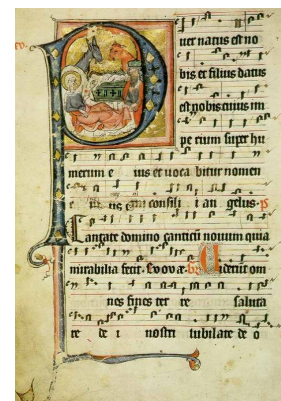 uer natus est no
bis et filius datus
est nobis cuius im
perium super hu
merum e ius et uoca bitur nomen
e ius consili i an gelus. ps
Cantate domino canticū nouum quia
mirabilia fecit. Euouae. Uiderūt om
nes fines ter re saluta
re de i nostri iubilate de o